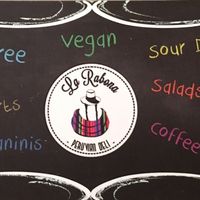 ree
vegan
sour D
La Rabona
PERUVIAN DELI
rts
Salads
aninis
coffee